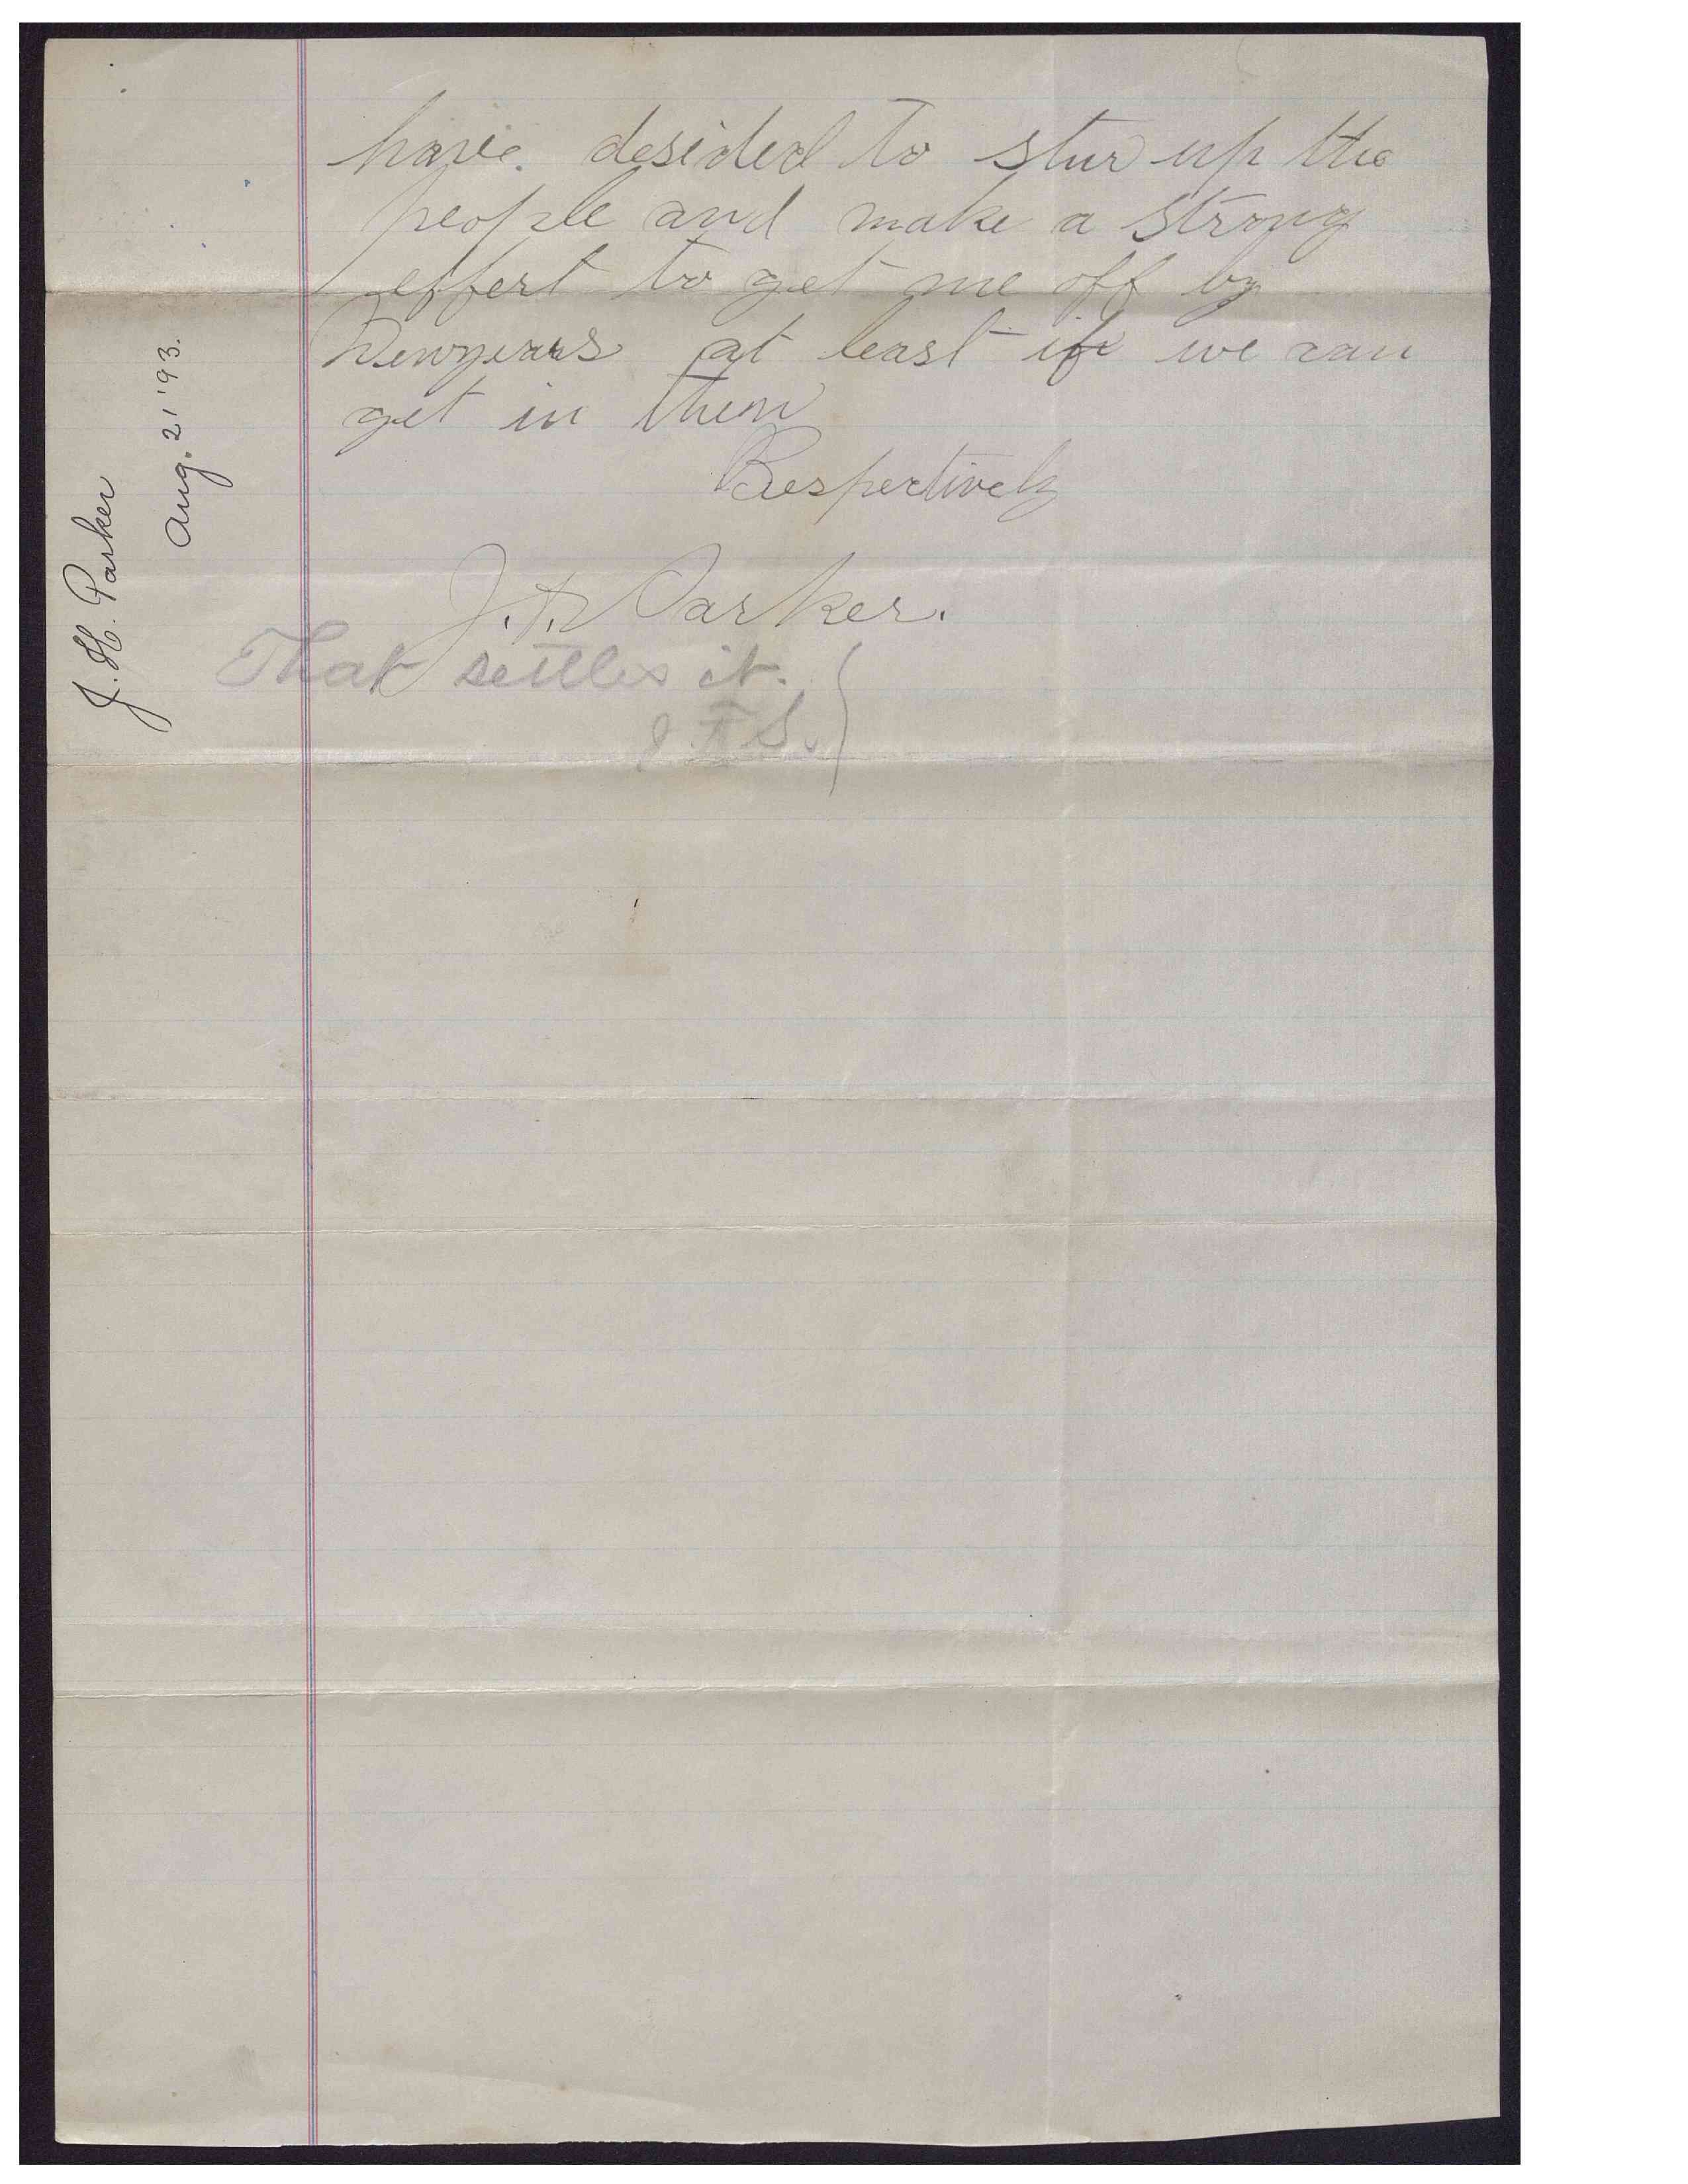 have. desided to stur up the
people and make a strong
effert to get me off by
Newyears at least if we can
get in then
Respectively
J. H. Parker.
That settles it.
J. F. S.
J. H. Parker
Aug. 21 '93.